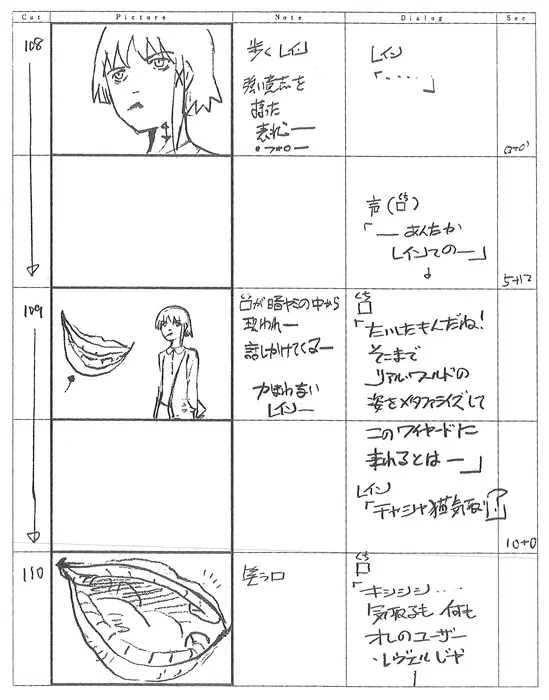 Cut Picture Note Dialog Sec
108
歩くレイン
強い意志を
持った
表情—
レイン
「‥‥‥」
声(口)
くち
「—あんたが
レインての—」
5+12
109
口が暗ヤミの中から
現われ—
話しかけてくる—
かまわない
レイン—
くち
口
「たいしたもんだね!
そこまで
リアルワールドの
姿をメタファライズして
このワイヤードに
来れるとは—」
レイン
「チャシャ猫気取り?」
10+0
110
笑う口
くち
口
「キシシシ‥‥
気取るも何も
オレのユーザー
レヴェルじゃ